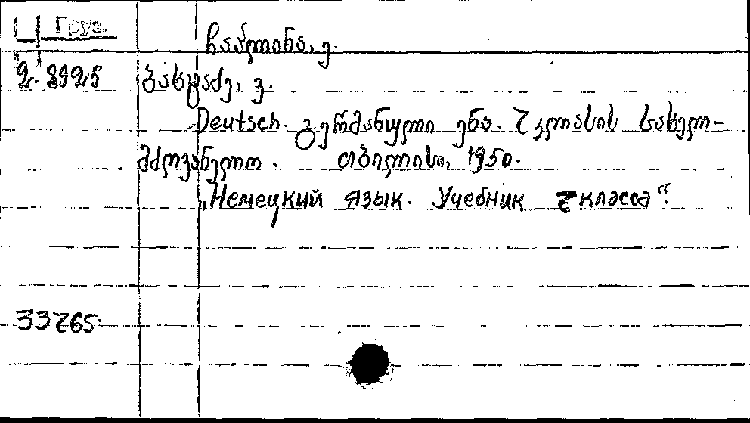 Груз.
ჩაალინა, ე.
2. 8925 ბასტაძე, ვ.
Deutsch. გერმანული ენა. 7 კლასის სახელ-
მძღვანელო. თბილისი, 1950.
„Немецкий язык. Учебник 7 класса“.
33765